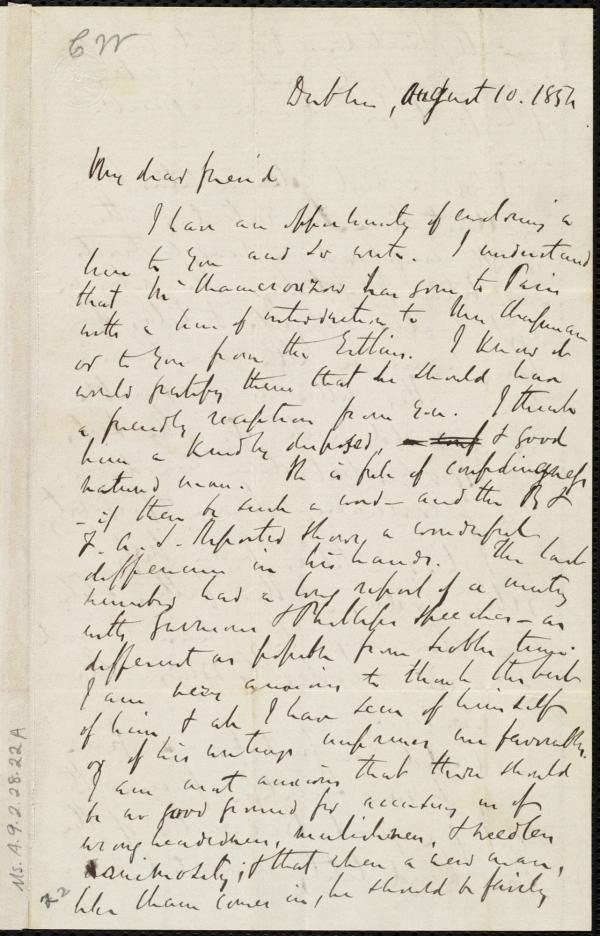 CW
Dublin, August 10. 1854
My dear friend
I have an opportunity of enclosing a
line to you and so write. I understand
that Mr Chamerovzow has gone to Paris
with a line of introduction to Mrs Chapman
or to you from the Estlins. I know it
would gratify them that he should have
a friendly reception from you. I think
him a kindly disposed, & good
natured man. He is full of confidingness
- if there be such a word - and the B &
F. A. S. Reporter shows a wonderful
difference in his hands. The last
number had a long report of a meeting
with Garrison & Phillips's speeches - as
different as possible from Scoble times.
I am very anxious to think the best
of him & all I have seen of himself
or of his writings impresses me favorably.
I am most anxious that there should
be no good ground for accusing us of
wrongheadedness, maliciousness, & needless
animosity; & that when a new man,
like Cham comes in, he should be fairly
Ms. A. 9. 2. 28. 22A